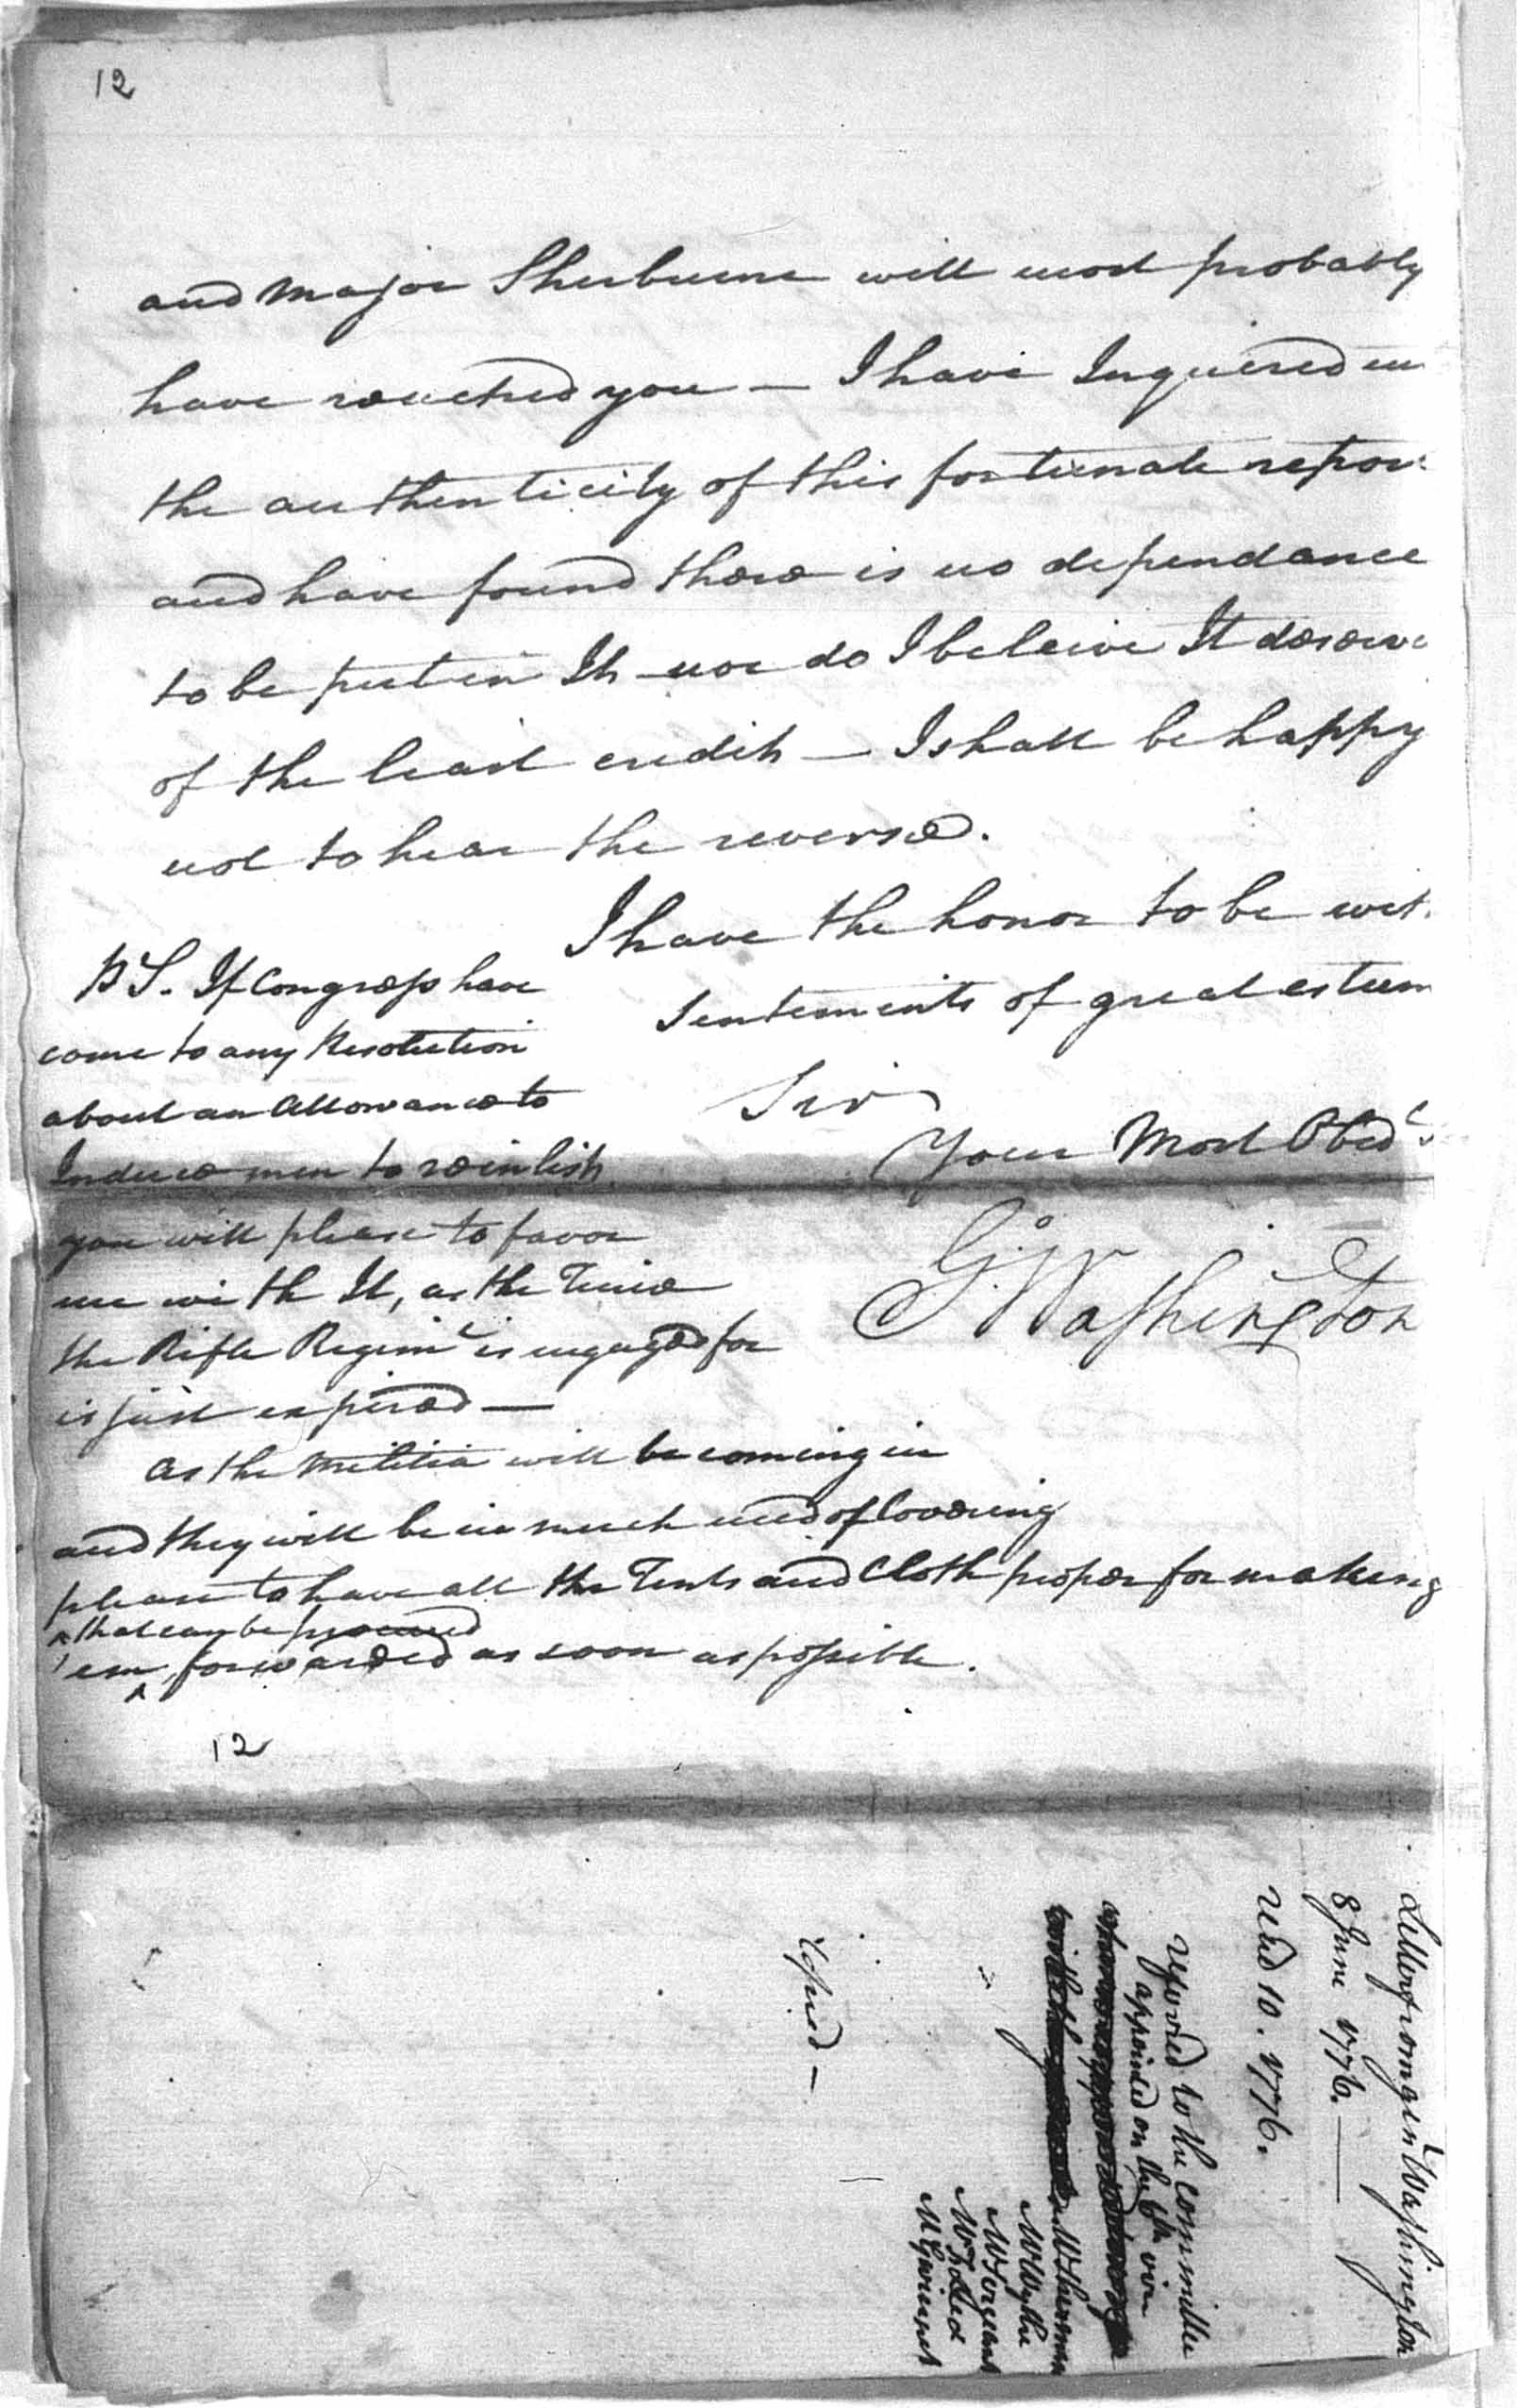 12
and Major Sherburne will most probably
have reached you — I have Inquired in
the authenticity of this fortunate repor
and have found there is no dependance
to be put in It nor do I beleive It deserve
of the least credit — I shall be happy
not to hear the reverse.
I have the honor to be wit
Sentiments of great esteem
Sir
Your Most Obed
G: Washington
P.S. If Congress have
come to any Resolution
about an Allowance to
Induce men to reinlist
you will please to favor
me with It, as the Time
the Rifle Regimt is engaged for
is just expired —
As the Militia will be coming in
and they will be in much need of Covering
please to have all the Tents and Cloth proper for making
that can be procured
'em forwarded as soon as possible.
12
Letter from genl Washington
8 June 1776. —
Read 10. 1776.
referred to the committee
appointed on the 6th viz
Mr Wythe
Mr Sergeant
Mr F Lee
Mr Gwinnet